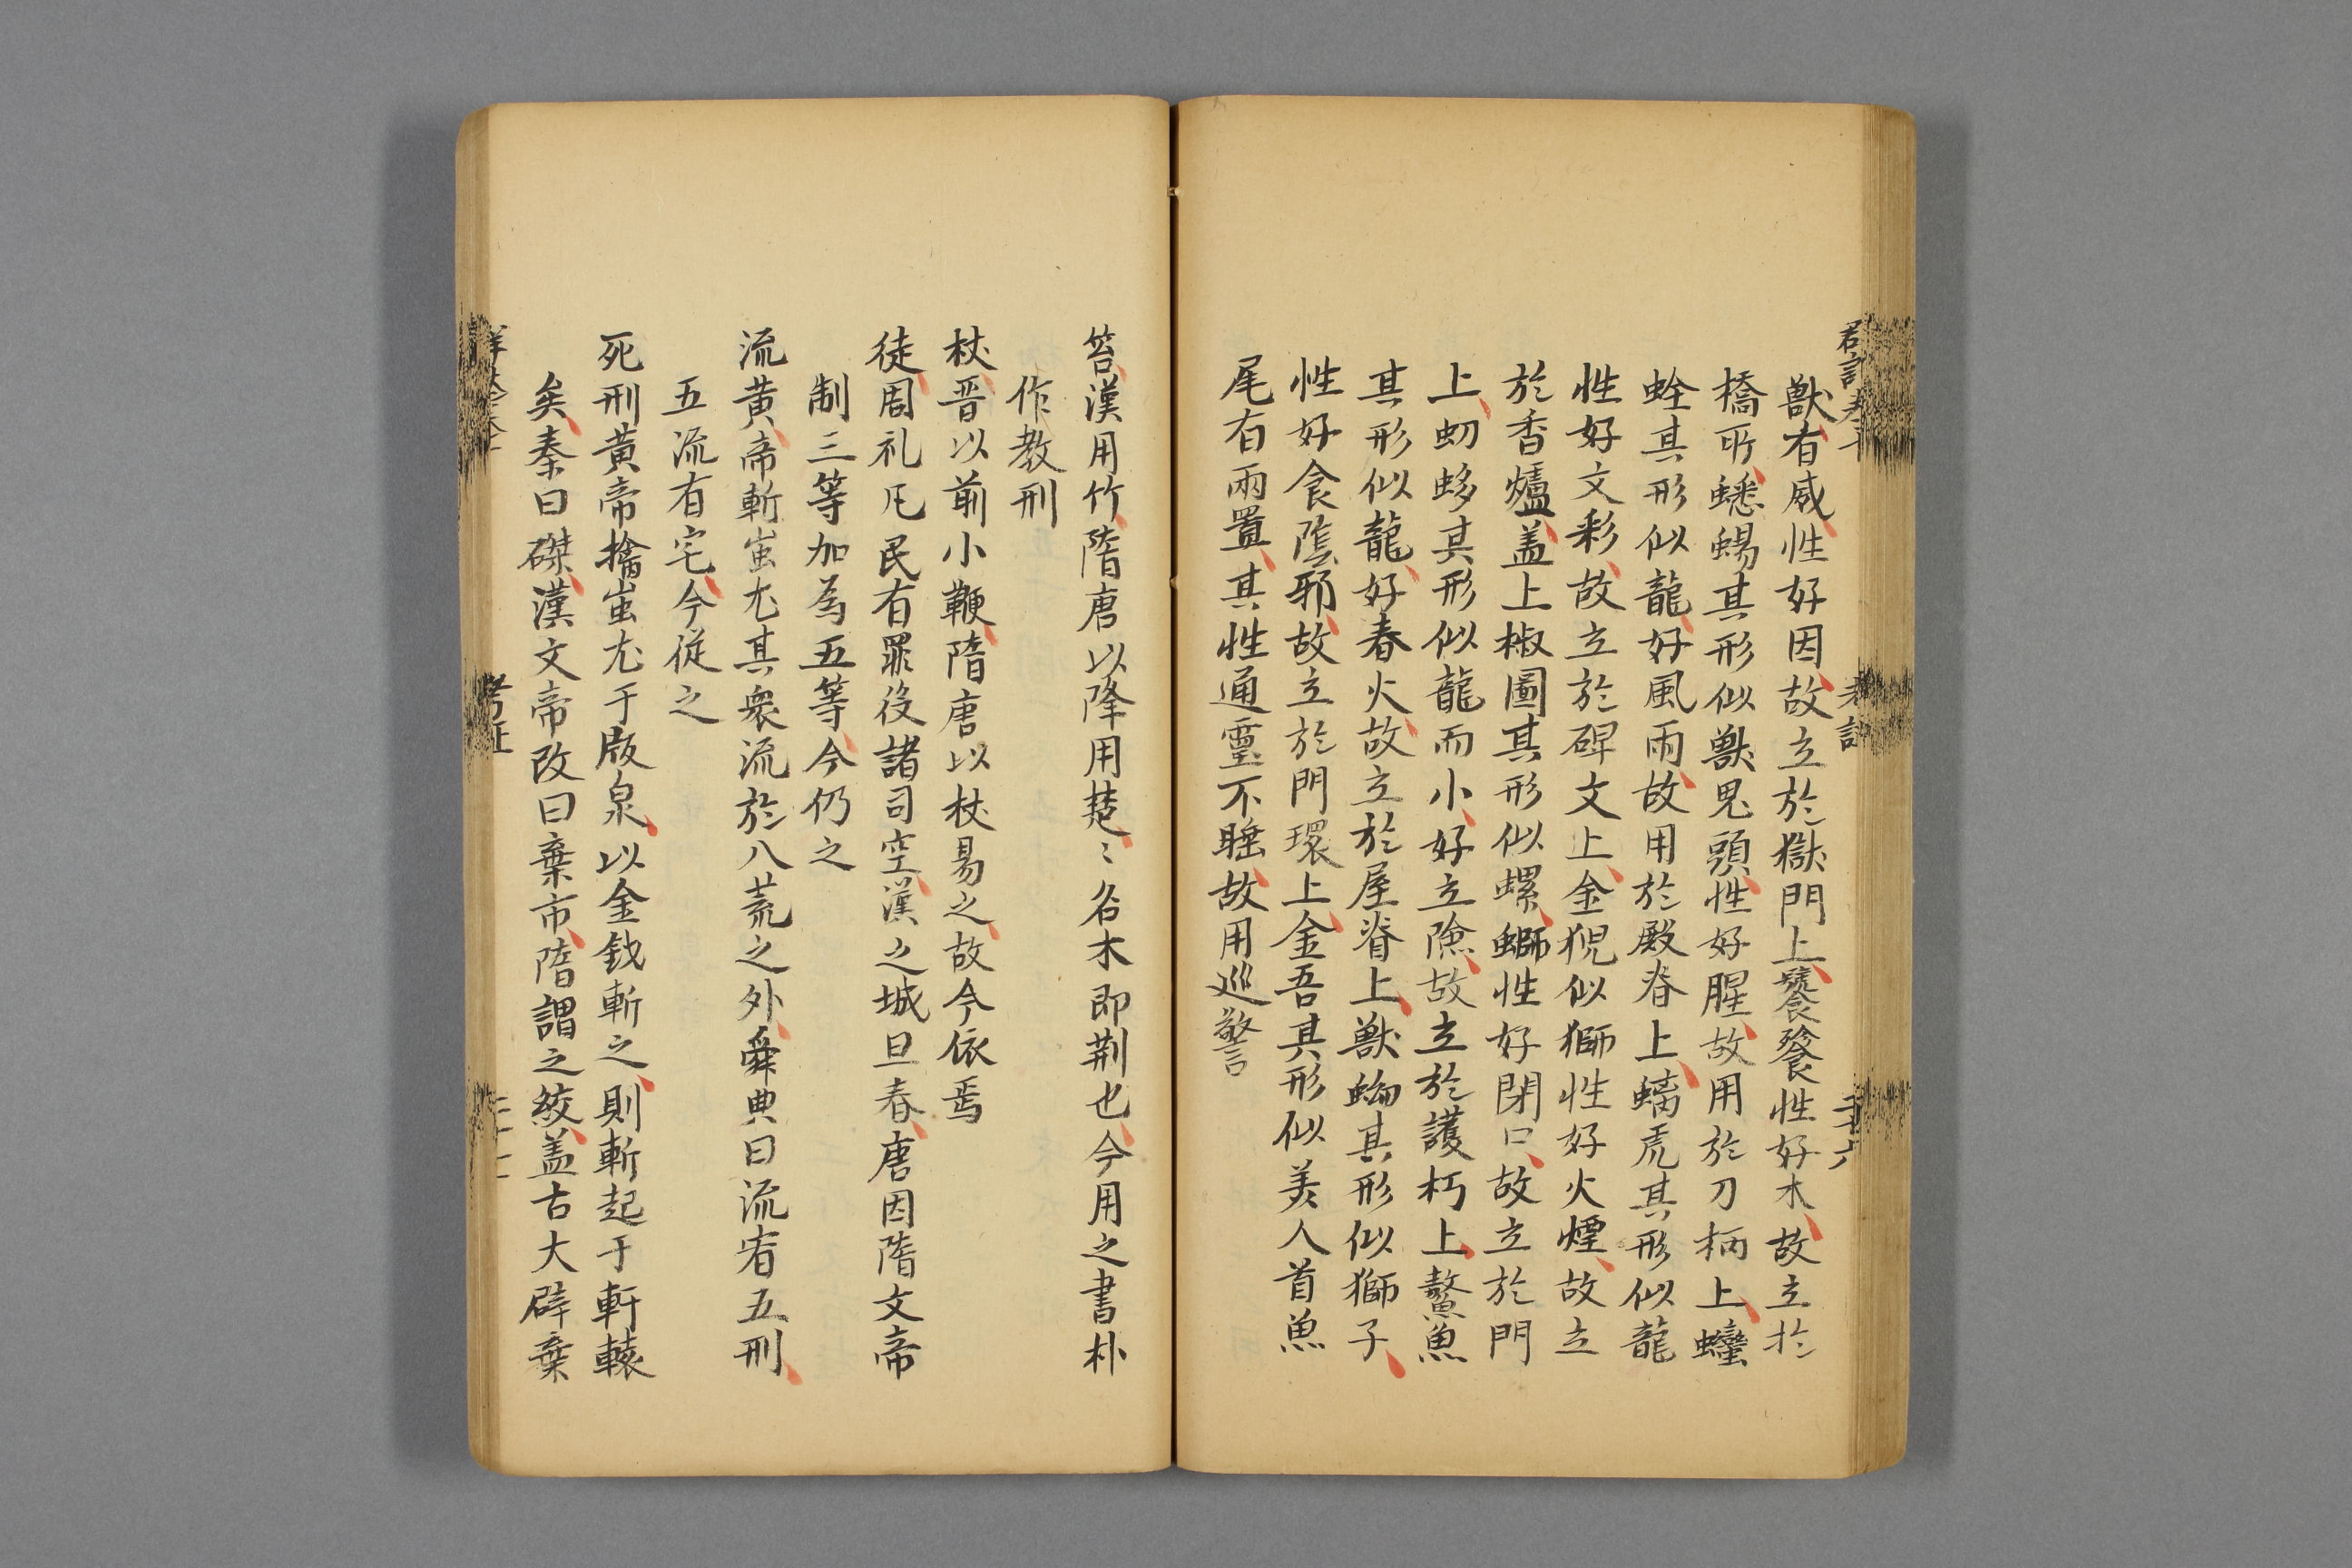 獸有威性好因故立於獄門上饕餮性好水故立於
橋所蟋蜴其形似獸鬼頭性好腥故用於刀柄上蠻
蛭其形似龍好風雨故用於殿脊上螭虎其形似龍
性好文彩故立於碑文上金猊似獅性好火煙故立
於香爐盖上椒圖其形似螺螄性好閉口故立於門
上虭蛥其形似龍而小好立險故立於護朽上鰲魚
其形似龍好吞火故立於屋脊上獸蚴其形似獅子
性好食陰邪故立於門環上金吾其形似美人首魚
尾有兩翼其性通靈不睡故用巡警
笞漢用竹隋唐以降用楚〻名木即荆也今用之書朴
作教刑
杖晋以前小鞭隋唐以杖易之故今依焉
徒周礼凡民有罪役諸司空漢之城旦舂唐因隋文帝
制三等加為五等今仍之
流黄帝斬蚩尤其衆流於八荒之外舜典曰流宥五刑
五流有宅今從之
死刑黄帝擒蚩尤于阪泉以金鉞斬之則斬起于軒轅
矣秦曰磔漢文帝改曰棄市隋謂之絞盖古大辟棄